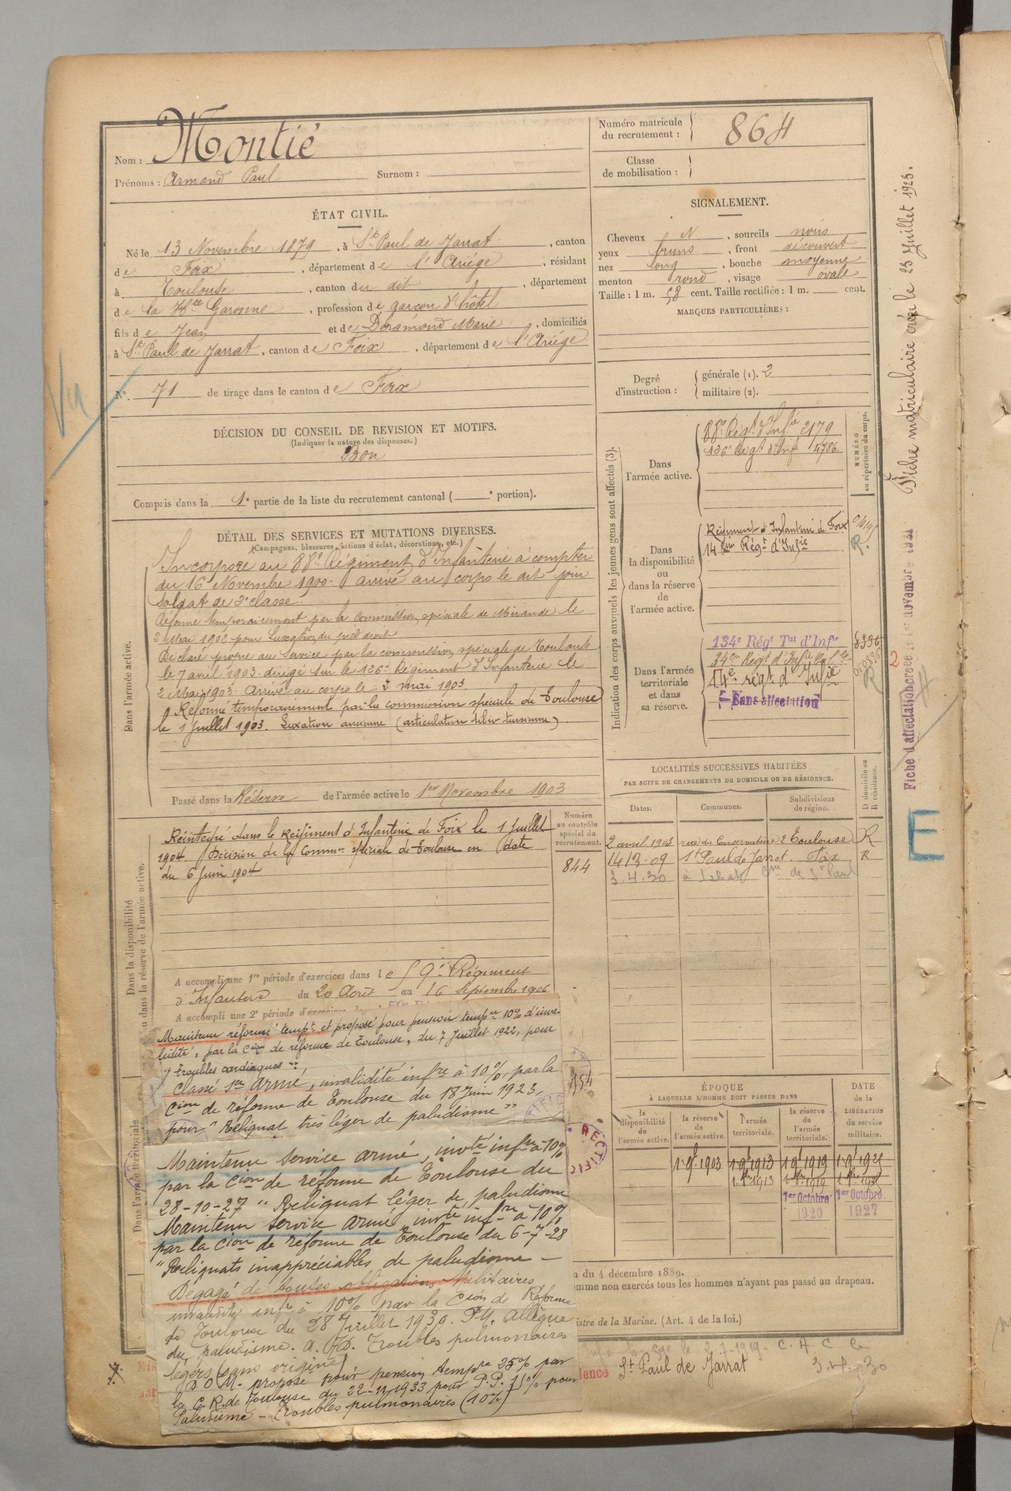 Nom : Montié
Prénoms : Armand Paul Surnom :
Numéro matricule du recrutement : 864
Classe de mobilisation :
ÉTAT CIVIL.
Né le 13 Novembre 1879, à St Paul de Jarrat, canton
de Foix, département de l'Ariège, résidant
à Toulouse, canton du dit, département
de la Hte Garonne, profession de garçon d'hôtel
fils de Jean et de Déramond Marie, domiciliés
à St Paul de Jarrat, canton de Foix, département de l'Ariège
N° 71 de tirage dans le canton de Foix
SIGNALEMENT.
Cheveux N, sourcils noirs
yeux bruns, front découvert
nez long, bouche moyenne
menton rond, visage ovale
Taille : 1 m. 58 cent. Taille rectifiée : 1 m. cent.
MARQUES PARTICULIÈRES :
Degré d'instruction : générale (1). 2
militaire (2).
DÉCISION DU CONSEIL DE REVISION ET MOTIFS.
(Indiquer la nature des dispenses.)
Bon
Compris dans la 1e partie de la liste du recrutement cantonal ( e portion).
DÉTAIL DES SERVICES ET MUTATIONS DIVERSES.
(Campagnes, blessures, actions d'éclat, décorations, etc.)
Dans l'armée active.
Incorporé au 88e Régiment d'Infanterie à compter
du 16 Novembre 1900. arrivé au corps le dit jour
Soldat de 2e classe
Réformé temporairement par la commission spéciale de Mirande le
2 Mai 1902 pour Luxation du pied droit
Déclaré propre au service par la commission spéciale de Toulouse
le 7 avril 1903 dirigé sur le 136e Régiment d'Infanterie le
2 Mai 1903. Arrivé au corps le 2 mai 1903
Réformé temporairement par la commission spéciale de Toulouse
le 1 juillet 1903. Luxation ancienne (articulation tibio tarsienne)
Passé dans la Réserve de l'armée active le 1er Novembre 1903
Dans la disponibilité ou dans la réserve de l'armée active.
Réintégré dans le Régiment d'Infanterie de Foix le 1 juillet
1904 Décision de la Common spéciale de Toulouse en date
du 6 juin 1904
Numéro au contrôle spécial du recrutement.
844
A accompli une 1re période d'exercices dans le 59e Régiment
d'Infanterie du 20 Août au 16 Septembre 1906
A accompli une 2e période d'exercices
Maintenu réformé tempre et proposé pour pension tempre 10% d'inva-
lidité, par la Cion de réforme de Toulouse, du 7 juillet 1922, pour
"troubles cardiaques"
Classé sce Armé, invalidité infre à 10%, par la
Cion de réforme de Toulouse du 18 juin 1923,
pour "Reliquat très léger de paludisme"
Maintenu service armé, invté infre à 10%
par la Cion de réforme de Toulouse du
28-10-27 "Reliquat léger de paludisme
Maintenu service armé invté infre à 10%
par la Cion de réforme de Toulouse du 6-7-28
"Reliquats inappréciables de paludisme –
Dégagé de toutes obligations Militaires
invalidité infre à 10% par la Cion de Réforme
de Toulouse du 28 Juillet 1930. Allègue
du paludisme. Troubles pulmonaires
légers sans origine
D.O.M. proposé pour pension tempre 25% par
la C.R. de Toulouse du pour
Paludisme – Troubles pulmonaires (10%)
Dans l'armée territoriale
Indication des corps auxquels les jeunes gens sont affectés (3).
NUMÉRO au répertoire du corps.
Dans l'armée active.
88e Régt d'Infie 2179
136e Régt d'Infie 4786
Dans la disponibilité ou dans la réserve de l'armée active.
Régiment d'Infanterie de Foix
14 Régt d'Infie
R.
Dans l'armée territoriale et dans sa réserve.
134e Régt Tal d'Infie
14e régt d'Infie
Sans affectation
R
LOCALITÉS SUCCESSIVES HABITÉES
PAR SUITE DE CHANGEMENTS DE DOMICILE OU DE RÉSIDENCE.
Dates. Communes. Subdivisions de région. D domicile ou R résidence.
2 avril 1903 rue du Conservatoire 2 Toulouse R
14/3.09 St Paul de Jarrat. Foix R
3.4.30
ÉPOQUE
À LAQUELLE L'HOMME DOIT PASSER DANS
la disponibilité de l'armée active. la réserve de l'armée active. l'armée territoriale. la réserve de l'armée territoriale.
DATE de la LIBÉRATION du service militaire.
1 9bre 1903 1 9bre 1913 1 9bre 1919
1er Octobre 1920 1er Octobre 1927
RECTIFIÉ
du 4 décembre 1889.
omme non exercés tous les hommes n'ayant pas passé au drapeau.
istre de la Marine. (Art. 4 de la loi.)
dence St Paul de Jarrat 3-4-30
Fiche matriculaire créée le 23 Juillet 1923.
Fiche d'affectation créée le novembre
E